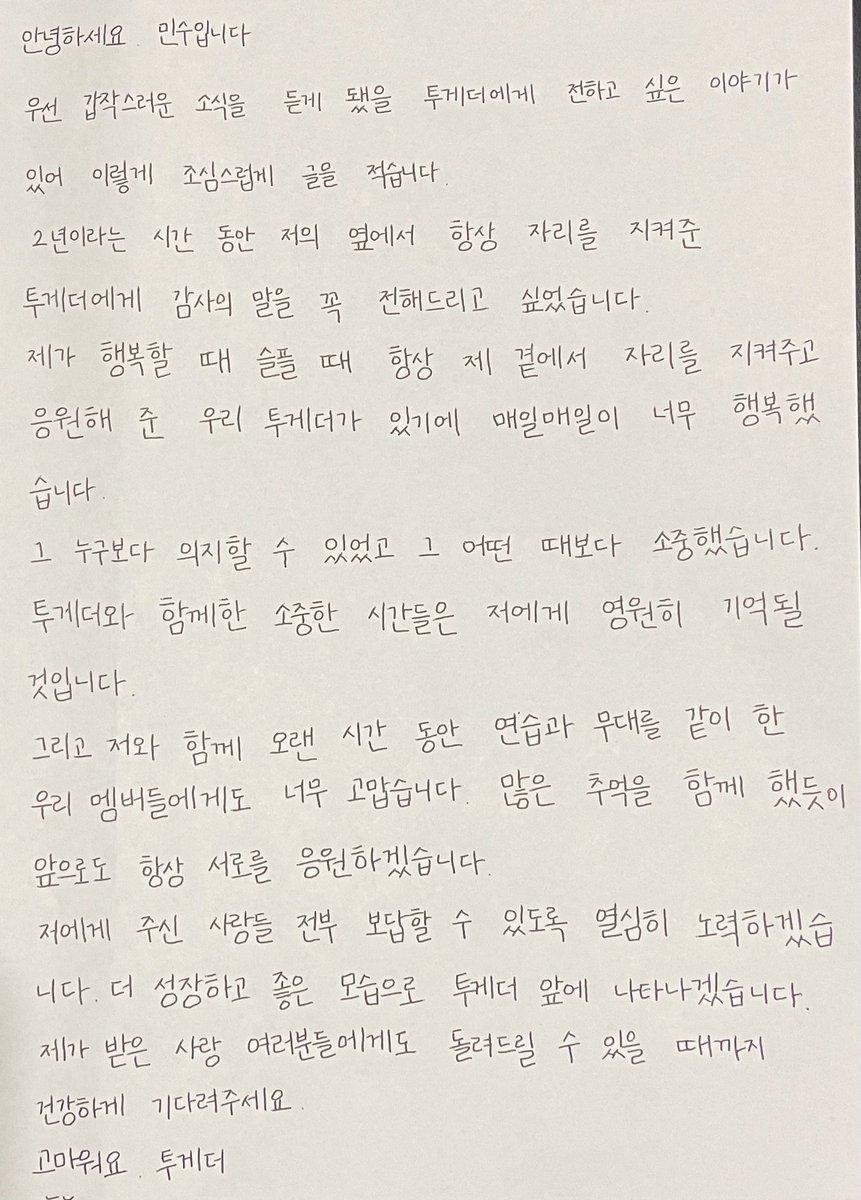 안녕하세요. 민수입니다
우선 갑작스러운 소식을 듣게 됐을 투게더에게 전하고 싶은 이야기가
있어 이렇게 조심스럽게 글을 적습니다.
2년이라는 시간 동안 저의 옆에서 항상 자리를 지켜준
투게더에게 감사의 말을 꼭 전해드리고 싶었습니다.
제가 행복할 때 슬플 때 항상 제 곁에서 자리를 지켜주고
응원해 준 우리 투게더가 있기에 매일매일이 너무 행복했
습니다.
그 누구보다 의지할 수 있었고 그 어떤 때보다 소중했습니다.
투게더와 함께한 소중한 시간들은 저에게 영원히 기억될
것입니다.
그리고 저와 함께 오랜 시간 동안 연습과 무대를 같이 한
우리 멤버들에게도 너무 고맙습니다. 많은 추억을 함께 했듯이
앞으로도 항상 서로를 응원하겠습니다.
저에게 주신 사랑들 전부 보답할 수 있도록 열심히 노력하겠습
니다. 더 성장하고 좋은 모습으로 투게더 앞에 나타나겠습니다.
제가 받은 사랑 여러분들에게도 돌려드릴 수 있을 때까지
건강하게 기다려주세요.
고마워요. 투게더